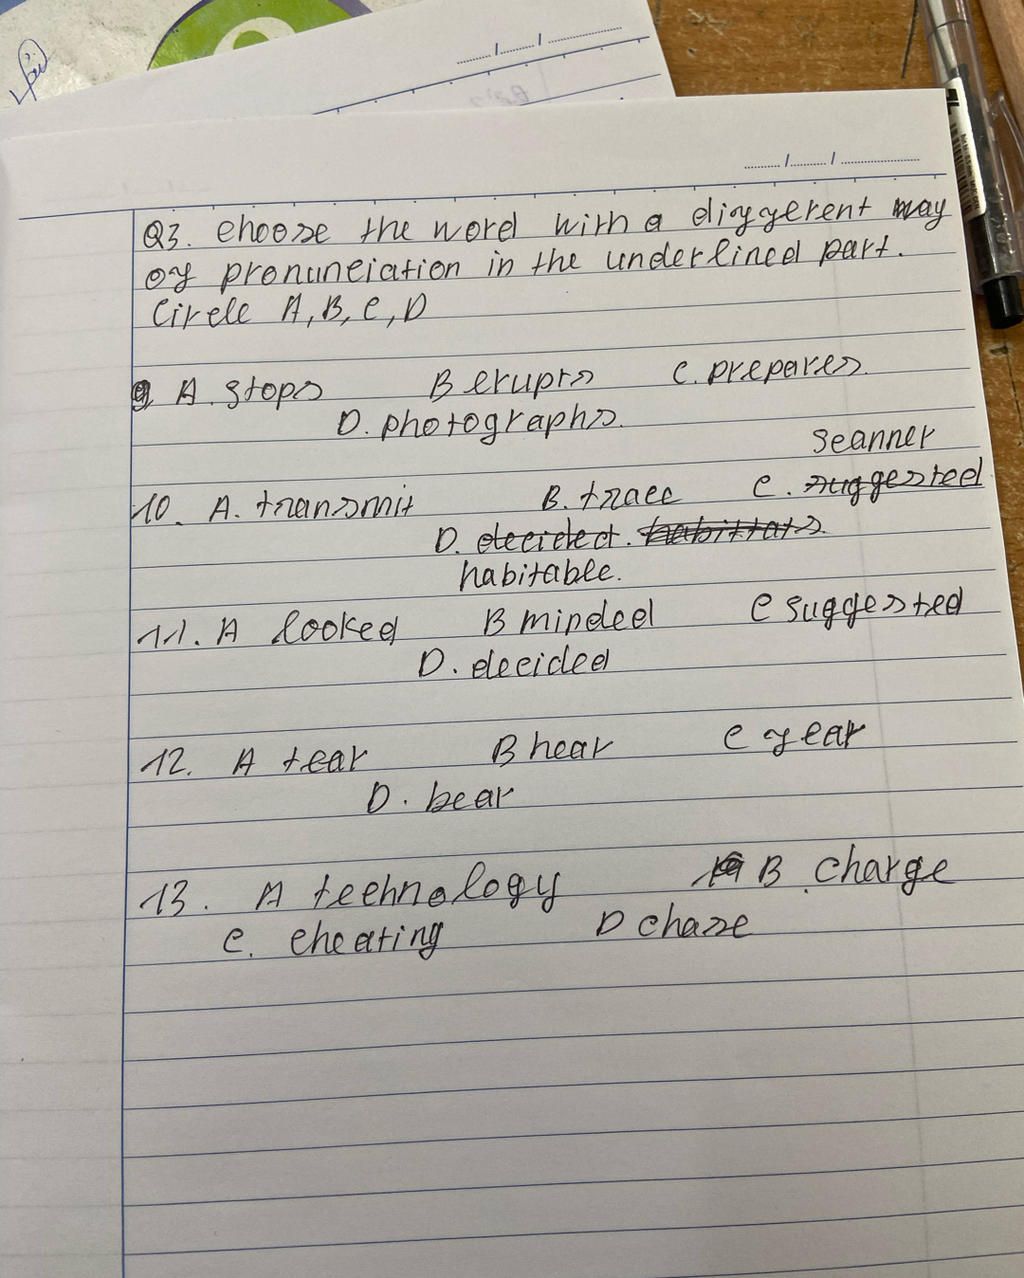 Q3. choose the word with a different way
of pronunciation in the underlined part.
Circle A, B, C, D
9 A. stops B erupts C. prepares.
D. photographs.
scanner
10. A. transmit B. trace C. suggested
D. decided. habittats.
habitable.
11. A looked B minded C suggested
D. decided
12. A tear B hear C year
D. bear
13. A technology B. charge
C. cheating D chase